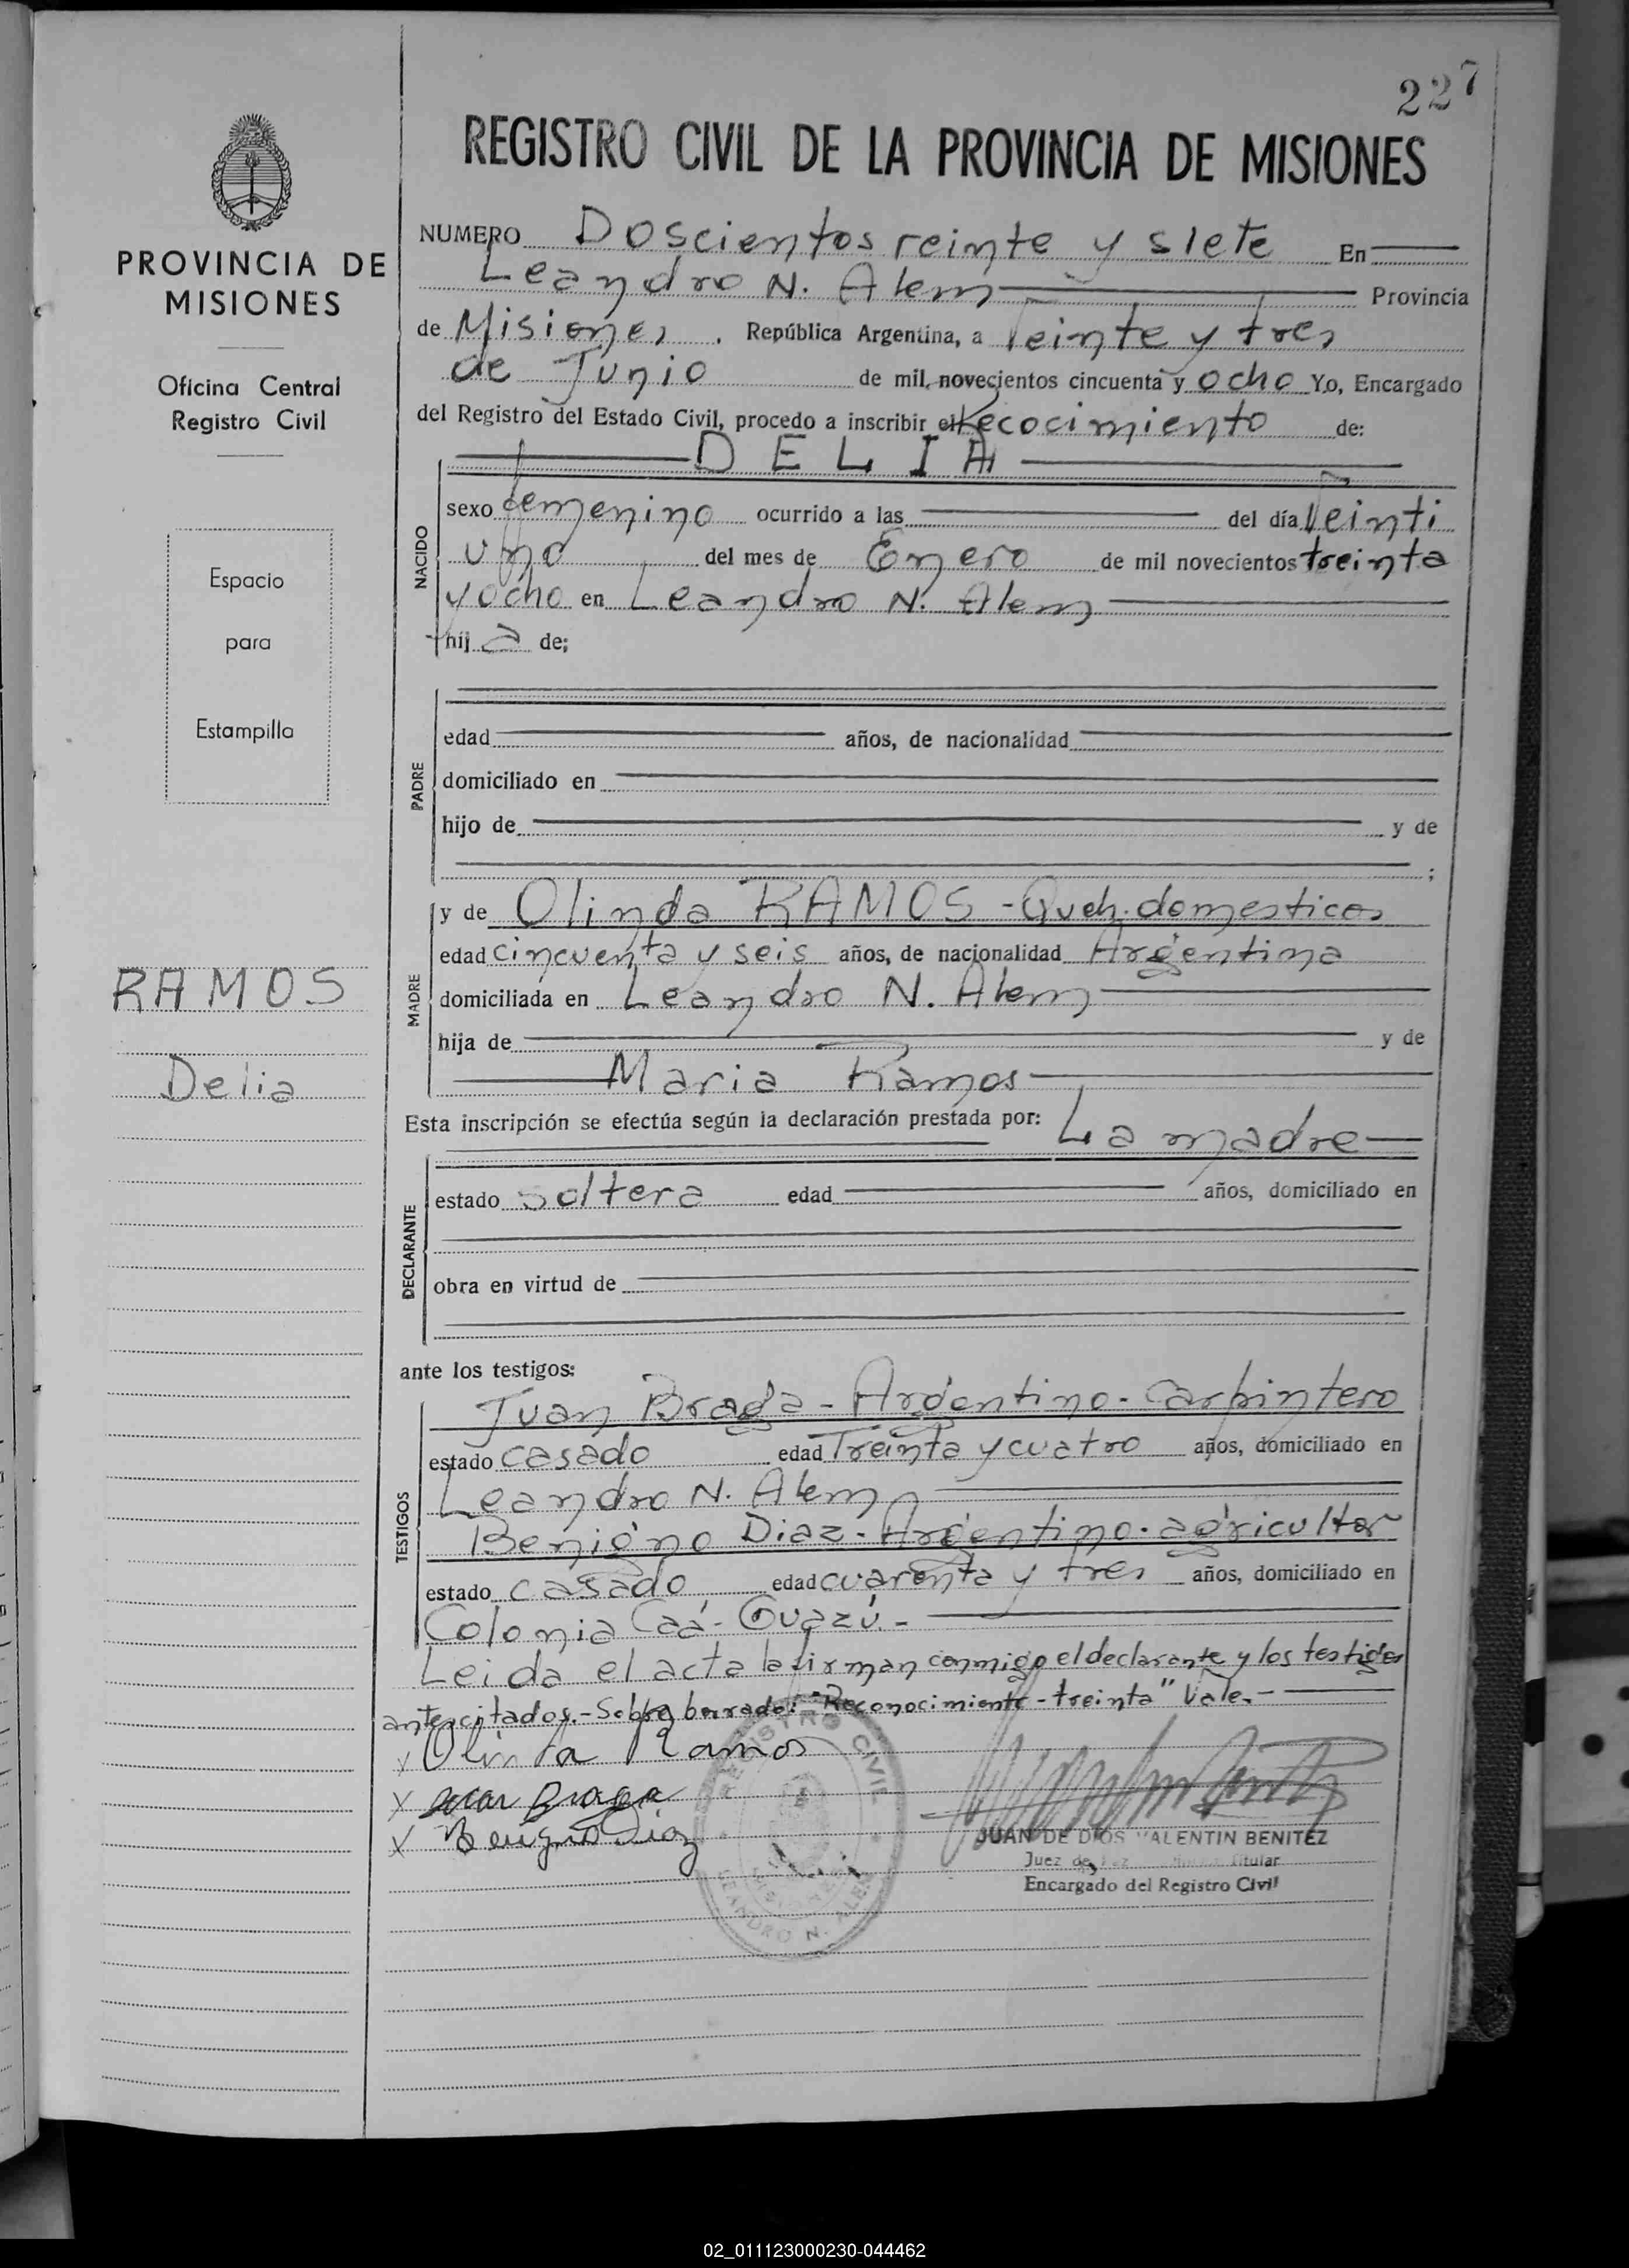 227
REGISTRO CIVIL DE LA PROVINCIA DE MISIONES
PROVINCIA DE
MISIONES
Oficina Central
Registro Civil
Espacio
para
Estampilla
RAMOS
Delia
NUMERO Doscientos veinte y siete En
Leandro N. Alem Provincia
de Misiones, República Argentina, a Veinte y tres
de Junio de mil novecientos cincuenta y ocho Yo, Encargado
del Registro del Estado Civil, procedo a inscribir el Recocimiento de:
DELIA
NACIDO
sexo femenino ocurrido a las del día Veinti
uno del mes de Enero de mil novecientos treinta
y ocho en Leandro N. Alem
hija de;
PADRE
edad años, de nacionalidad
domiciliado en
hijo de y de
;
MADRE
y de Olinda RAMOS - Queh. domesticos
edad cincuenta y seis años, de nacionalidad Argentina
domiciliada en Leandro N. Alem
hija de y de
Maria Ramos
Esta inscripción se efectúa según la declaración prestada por: La madre
DECLARANTE
estado soltera edad años, domiciliado en
obra en virtud de
ante los testigos:
TESTIGOS
Juan Braga - Argentino - Carpintero
estado casado edad Treinta y cuatro años, domiciliado en
Leandro N. Alem
Benigno Diaz - Argentino - agricultor
estado casado edad cuarenta y tres años, domiciliado en
Colonia Caá-Guazú.-
Leida el acta la firman conmigo el declarante y los testigos
antescitados.- Sobre borrado: "Reconocimiento - treinta" Vale.-
x Olinda Ramos
x Juan Braga
x Benigno Diaz
REGISTRO CIVIL
MISIONES
LEANDRO N. ALEM
JUAN DE DIOS VALENTIN BENITEZ
Juez de Paz Titular
Encargado del Registro Civil
02_011123000230-044462